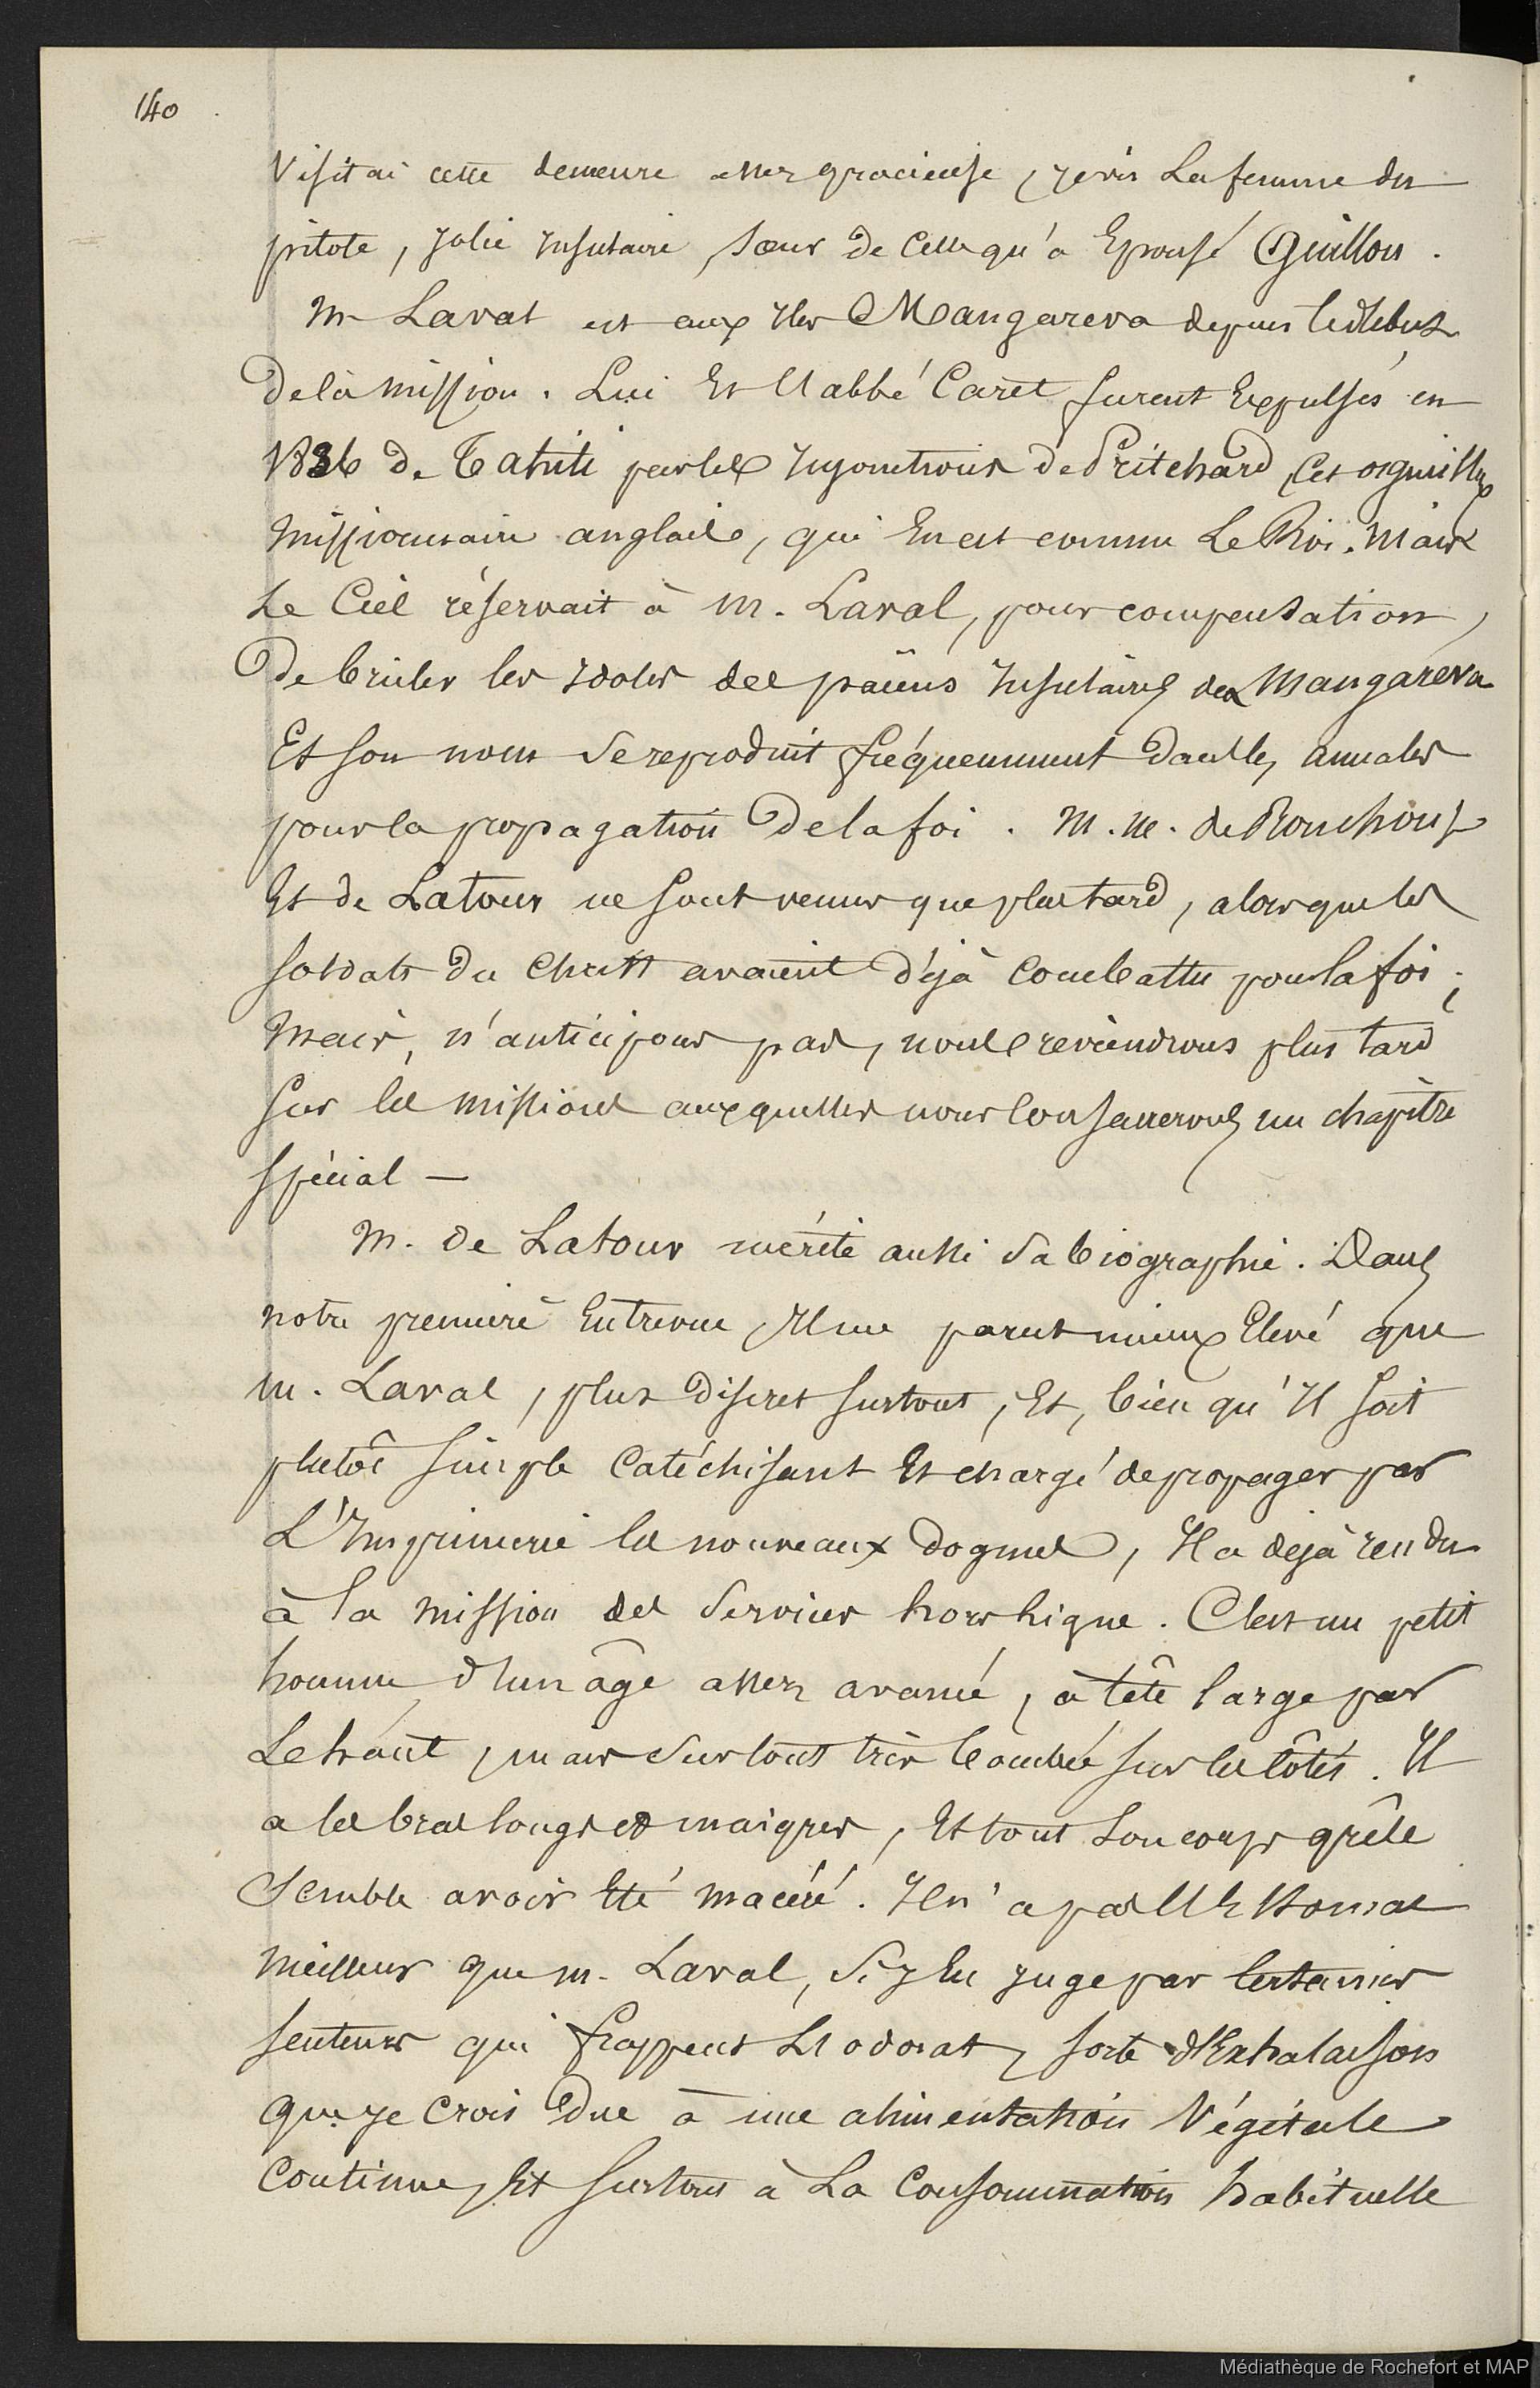 140
Visitai cette demeure assez gracieuse, je vis La femme du
pilote, jolie Insulaire, sœur de Celle qu'a Epousé Guillou.
Mr Laval est aux Iles Mangareva depuis le début
de la mission. Lui Et l'abbé Caret furent Expulsés en
1836 de Tahiti par les Injonctions de Pritchard, Cet orgueilleux
missionnaire anglais, qui En est comme Le Roi. Mais
Le Ciel réservait à M. Laval, pour compensation,
De brûler les Idoles des païens Insulaires de Mangaréva
Et son nom se reproduit fréquemment dans les annales
pour la propagation de la foi. M.M. de Rouchouze
Et de Latour ne sont venus que plus tard, alors que les
soldats du Christ avaient déjà Combattu pour la foi;
Mais, n'anticipons pas, nous reviendrons plus tard
Sur les missions auxquelles nous Consacrerons un chapitre
spécial —
M. de Latour mérite aussi sa biographie. Dans
notre première Entrevue, Il me parut mieux Elevé que
M. Laval, plus Discret surtout, Et, bien qu'Il soit
plutôt simple Catéchisant Et chargé de propager par
L'Imprimerie les nouveaux Dogmes, Il a déjà rendu
à la mission des Services hors ligne. C'est un petit
homme, d'un âge assez avancé, à tête large par
Le haut, mais surtout très bombée sur les côtés. Il
a les bras longs et maigres, Et tout Son corps grêle
Semble avoir Eté macéré. Il n'a pas l'Estomac
meilleur que M. Laval, Si j'En juge par Certaines
senteurs qui frappent L'odorat, sorte d'Exhalaison
que je crois Due à une alimentation Végétale
Continue, Et surtout à La Consommation habituelle
Médiathèque de Rochefort et MAP